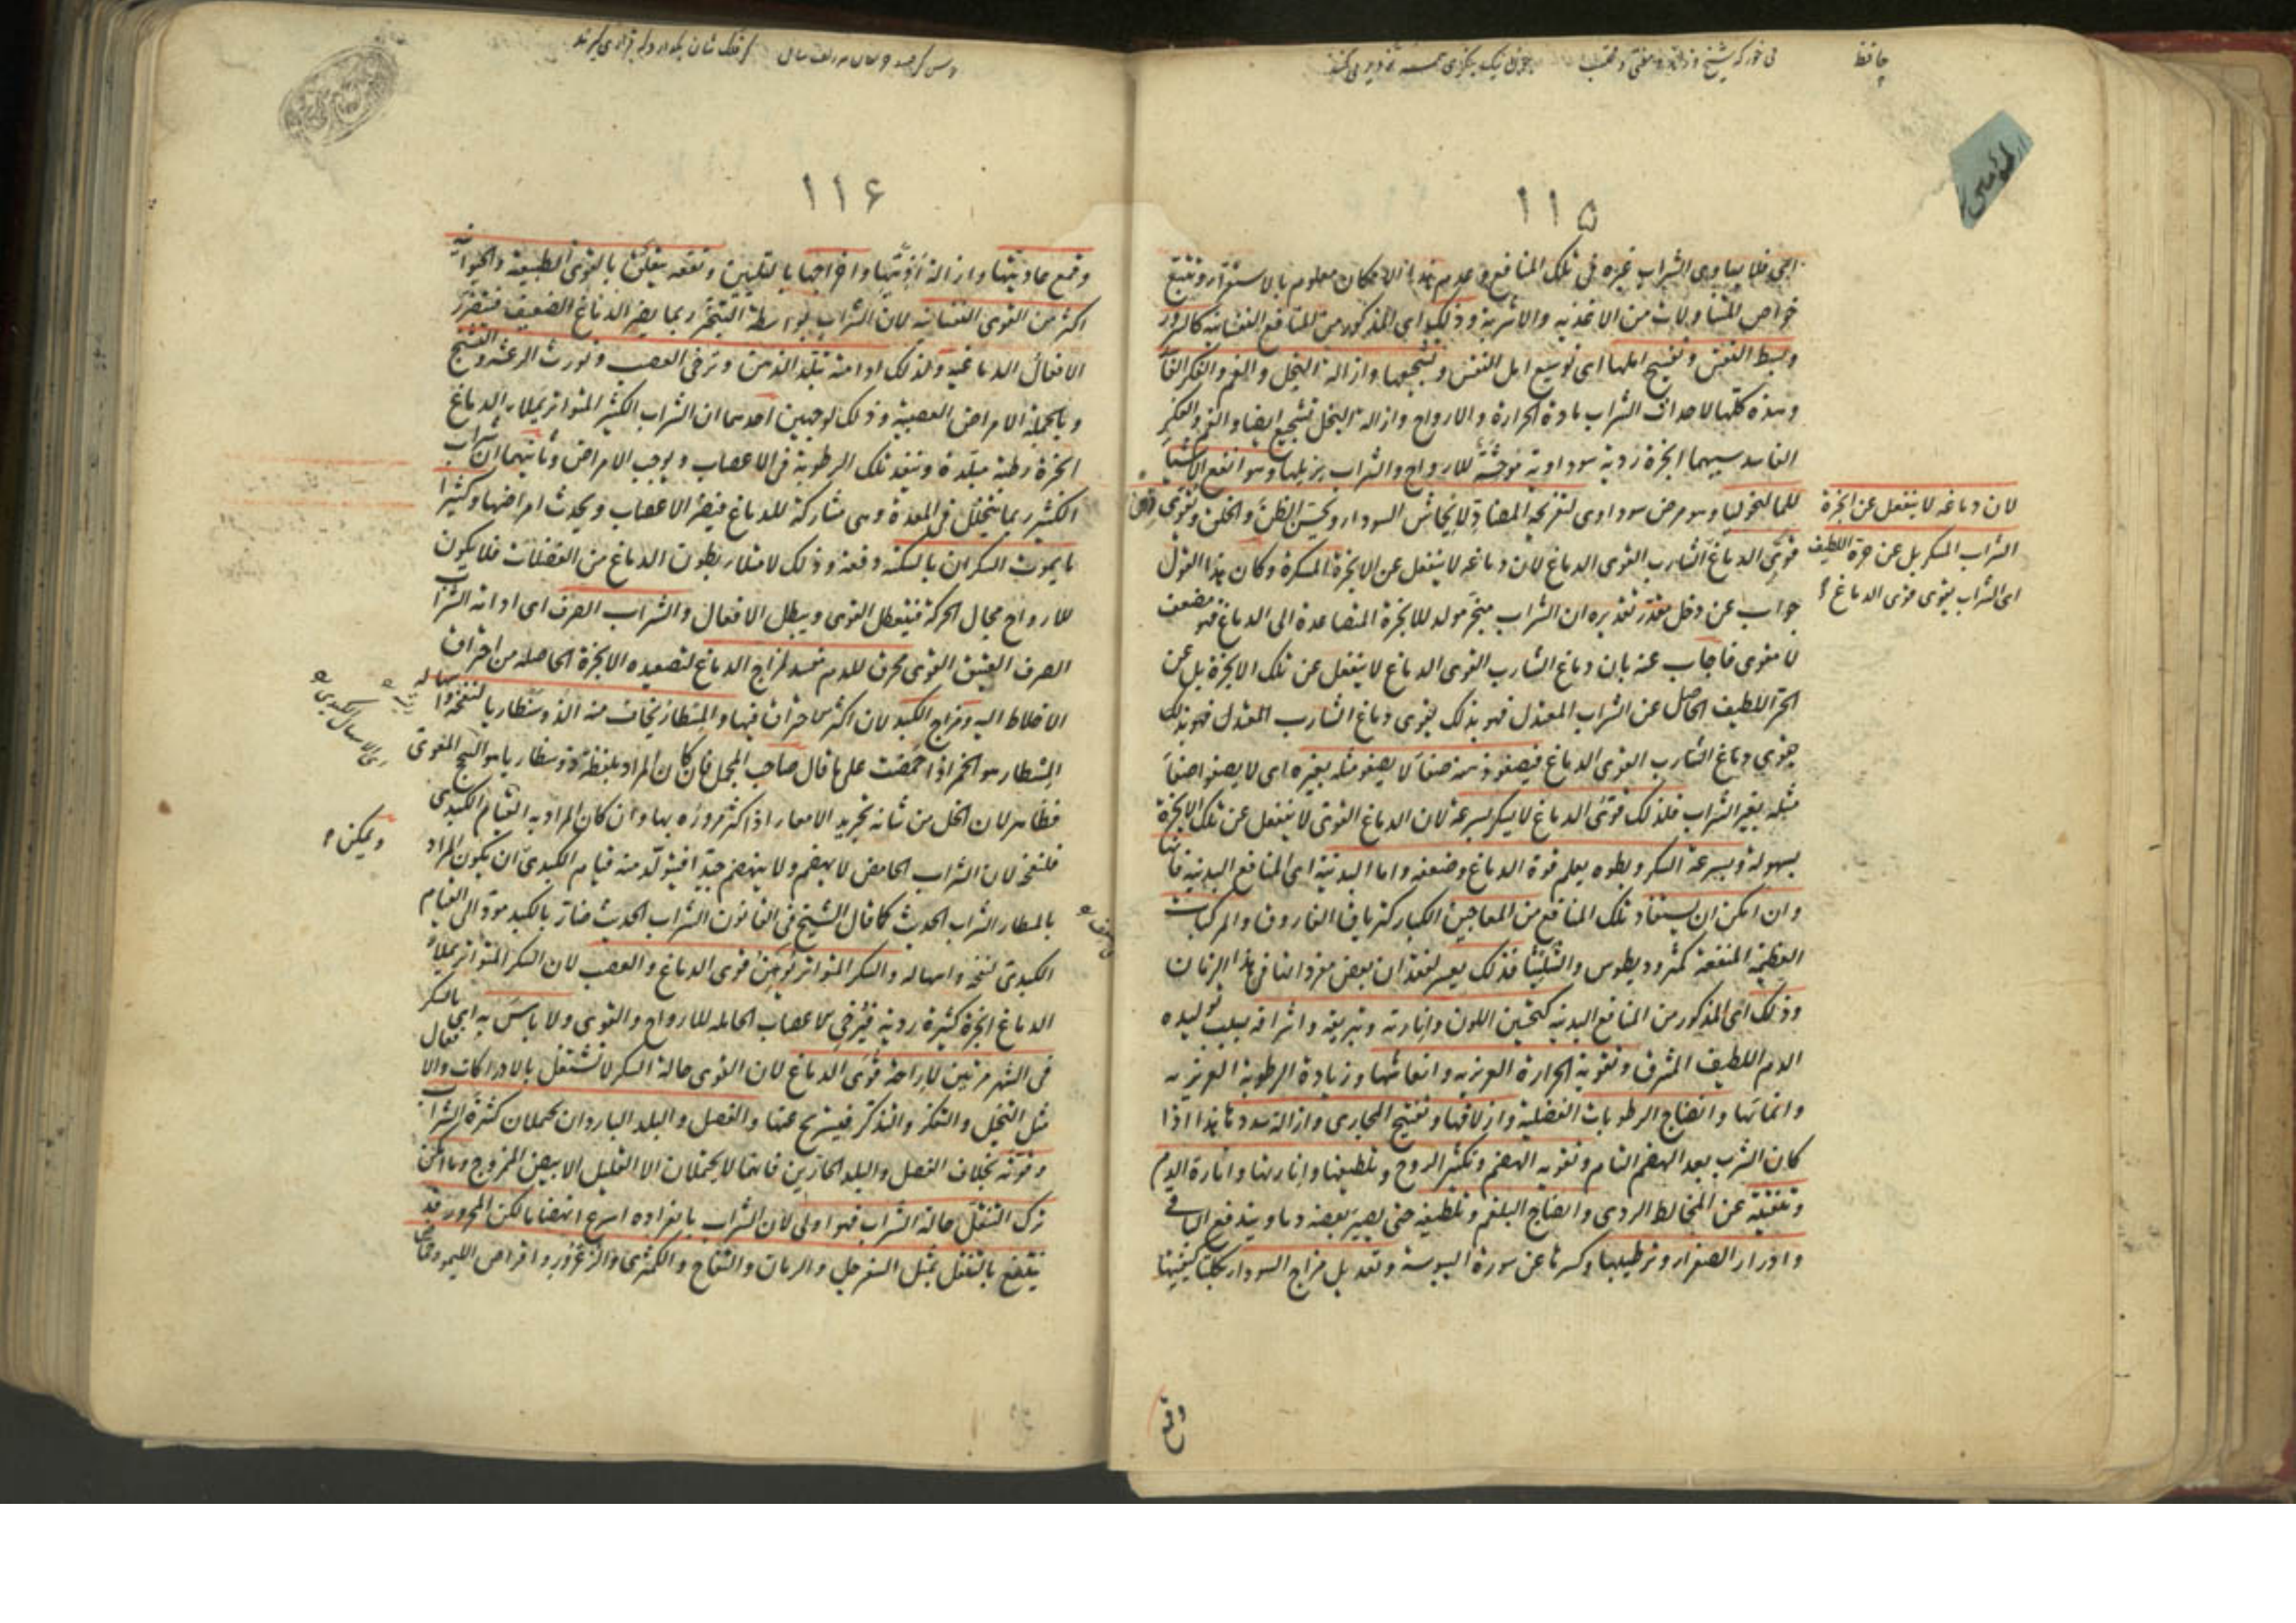 حافظ
می خور که شیخ و حافظ و مفتی و محتسب
چون نیک بنگری همه تزویر می کنند
۱۱۵
ای فلا یساوی الشراب غیره فی تلک المنافع و عدم هذا الامکان معلوم بالاستقراء و تتبع
خواص المتناولات من الاغذیه و الاشربه و ذلک ای المذکور من المنافع النفسانیه کالسرور
و بسط النفس و تفسیح املها ای توسیع امل النفس و تشجیعها و ازالة البخل و الغم و الفکر
و هذه کلها لاحداث الشراب مادة الحرارة و الارواح و ازالة البخل تشجیع ایضا و الغم و الفکر
الفاسد سببهما ابخرة ردیة سوداویة موحشة للارواح و الشراب یزیلها و هو انفع الاشیا
للمالیخولیا و هو مرض سوداوی لتفریحه المضاد لایحاش السوداء و تحسین الظن و الخلق و تقوی
قوی الدماغ الشارب القوی الدماغ لان دماغه لا ینفعل عن الابخرة المسکرة و کان هذا القول
جواب عن دخل مقدر تقدیره ان الشراب مبخر مولد للابخرة المتصاعدة الی الدماغ فهو مضعف
لا مقوی فاجاب عنه بان دماغ الشارب القوی الدماغ لا ینفعل عن تلک الابخرة بل عن
الحر اللطیف الحاصل عن الشراب المعتدل فهو بذلک یقوی دماغ الشارب المعتدل فهو بذلک
یقوی دماغ الشارب القوی الدماغ فیصفو ذهنه صفاً لا یصفو مثله بغیره ای لا یصفو صفاً
مثله بغیر الشراب فلذلک قوی الدماغ لا یسکر بسرعة لان الدماغ القوی لا ینفعل عن تلک الابخرة
بسهولة و بسرعة السکر و بطوه یعلم قوة الدماغ و ضعفه و اما البدنیة ای المنافع البدنیة فانها
و ان امکن ان یستفاد تلک المنافع من المعاجین الکبار کتریاق الفاروق و المرکبات
العظیمة المنفعة کمثرودیطوس و الشلیثا فذلک یعسر لفقدان بعض مفرداتها فی هذا الزمان
و ذلک ای المذکور من المنافع البدنیه کتحسین اللون و انارته و تبریقه و اشراقه بسبب تولیده
الدم اللطیف المشرق و تقویة الحرارة الغریزیه و انعاشها و زیادة الرطوبة الغریزیه
و انمائها و انضاج الرطوبات الفضلیة و ازلاقها و تفتیح المجاری و ازالة سددها هذا اذا
کان الشرب بعد الهضم التام و تقویة الهضم و تکثیر الروح و تلطیفها و انارتها و انارة الدم
و تنقیته عن المخالط الردی و انضاج البلغم و تلطیفه حتی یصیر بعضه دما و یندفع الباقی
و ادرار الصفراء و ترطیبها و کسرها عن سورة الیبوسة و تعدیل مزاج السوداء بکلتا کیفیتها
لان دماغه لا ینفعل عن ابخرة
الشراب المسکر بل عن حره اللطیف
ای الشراب یقوی قوی الدماغ
وقمع
۱۱۶
و قمع عادیتها و ازالة اذیتها و اخراجها بالتلیین و نفعه یتعلق بالقوی الطبیعیة و الحیوانیه
اکثر من القوی النفسانیه لان الشراب بواسطة التبخر ربما یضر الدماغ الضعیف فتضرر
الافعال الدماغیه و لذلک ادامته تبلد الذهن و ترخی العصب و تورث الرعشه و التشنج
و بالجملة الامراض العصبیة و ذلک لوجهین احدهما ان الشراب الکثیر المتواتر یملاء الدماغ
ابخرة رطبة مبلدة و تنفذ تلک الرطوبة فی الاعصاب و یوجب الامراض و ثانیهما ان الشراب
الکثیر ربما یتخلل فی المعدة و هی مشارکة للدماغ فیضر الاعصاب و یحدث امراضها و کثیرا
ما یموت السکران بالسکتة دفعة و ذلک لامتلاء بطون الدماغ من الفضلات فلا یکون
للارواح مجال الحرکة فیتعطل القوی و یبطل الافعال و الشراب الصرف ای ادامة الشراب
الصرف العتیق القوی محرق للدم مفسد لمزاج الدماغ لتصعیده الابخرة الحاصله من احتراق
الاخلاط الیه و مزاج الکبد لان اکثر الاحتراق فیها و المسطار یخاف منه الذوسنطاریا لنفخه و اسهاله
المسطار هو الخمر اذا حمضت علی ما قال صاحب المجمل فان کان المراد بلفظة ذوسنطاریا هو السحج المعوی
فظاهر لان الخل من شانه تجرید الامعاء اذا کثر مروره بها و ان کان المراد به القیام الکبدی
فلنفخه لان الشراب الحامض لا یهضم و لا ینهضم جیدا فیتولد منه قیام الکبدی ان یکون المراد
بالمسطار الشراب الحدیث کما قال الشیخ فی القانون الشراب الحدیث ضار بالکبد مؤد الی القیام
الکبدی لنفخه و اسهاله و السکر المتواتر یوهن قوی الدماغ و العصب لان السکر المتواتر یملأ
الدماغ ابخرة کثیرة ردیة فیرخی الاعصاب الحامله للارواح و القوی و لا باس به ای بالسکر
فی الشهر مرتین لاراحة قوی الدماغ لان القوی حالة السکر لا تشتغل بالادراکات و الافعال
مثل التخیل و التفکر و التذکر فیستریح عنها و الفصل و البلد الباردان یحتملان کثرة الشراب
و قوته بخلاف الفصل و البلد الحارین فانهما لا یحتملان الا القلیل الابیض الممزوج و ما امکن
ترک التنقل حالة الشراب فهو اولی لان الشراب بانفراده اسرع انهضاما لکن المحرور قد
ینتفع بالتنقل بمثل السفرجل و الرمان و التفاح و الکمثری و الزعرور و اقراص اللیمو و حماض
و یمکن